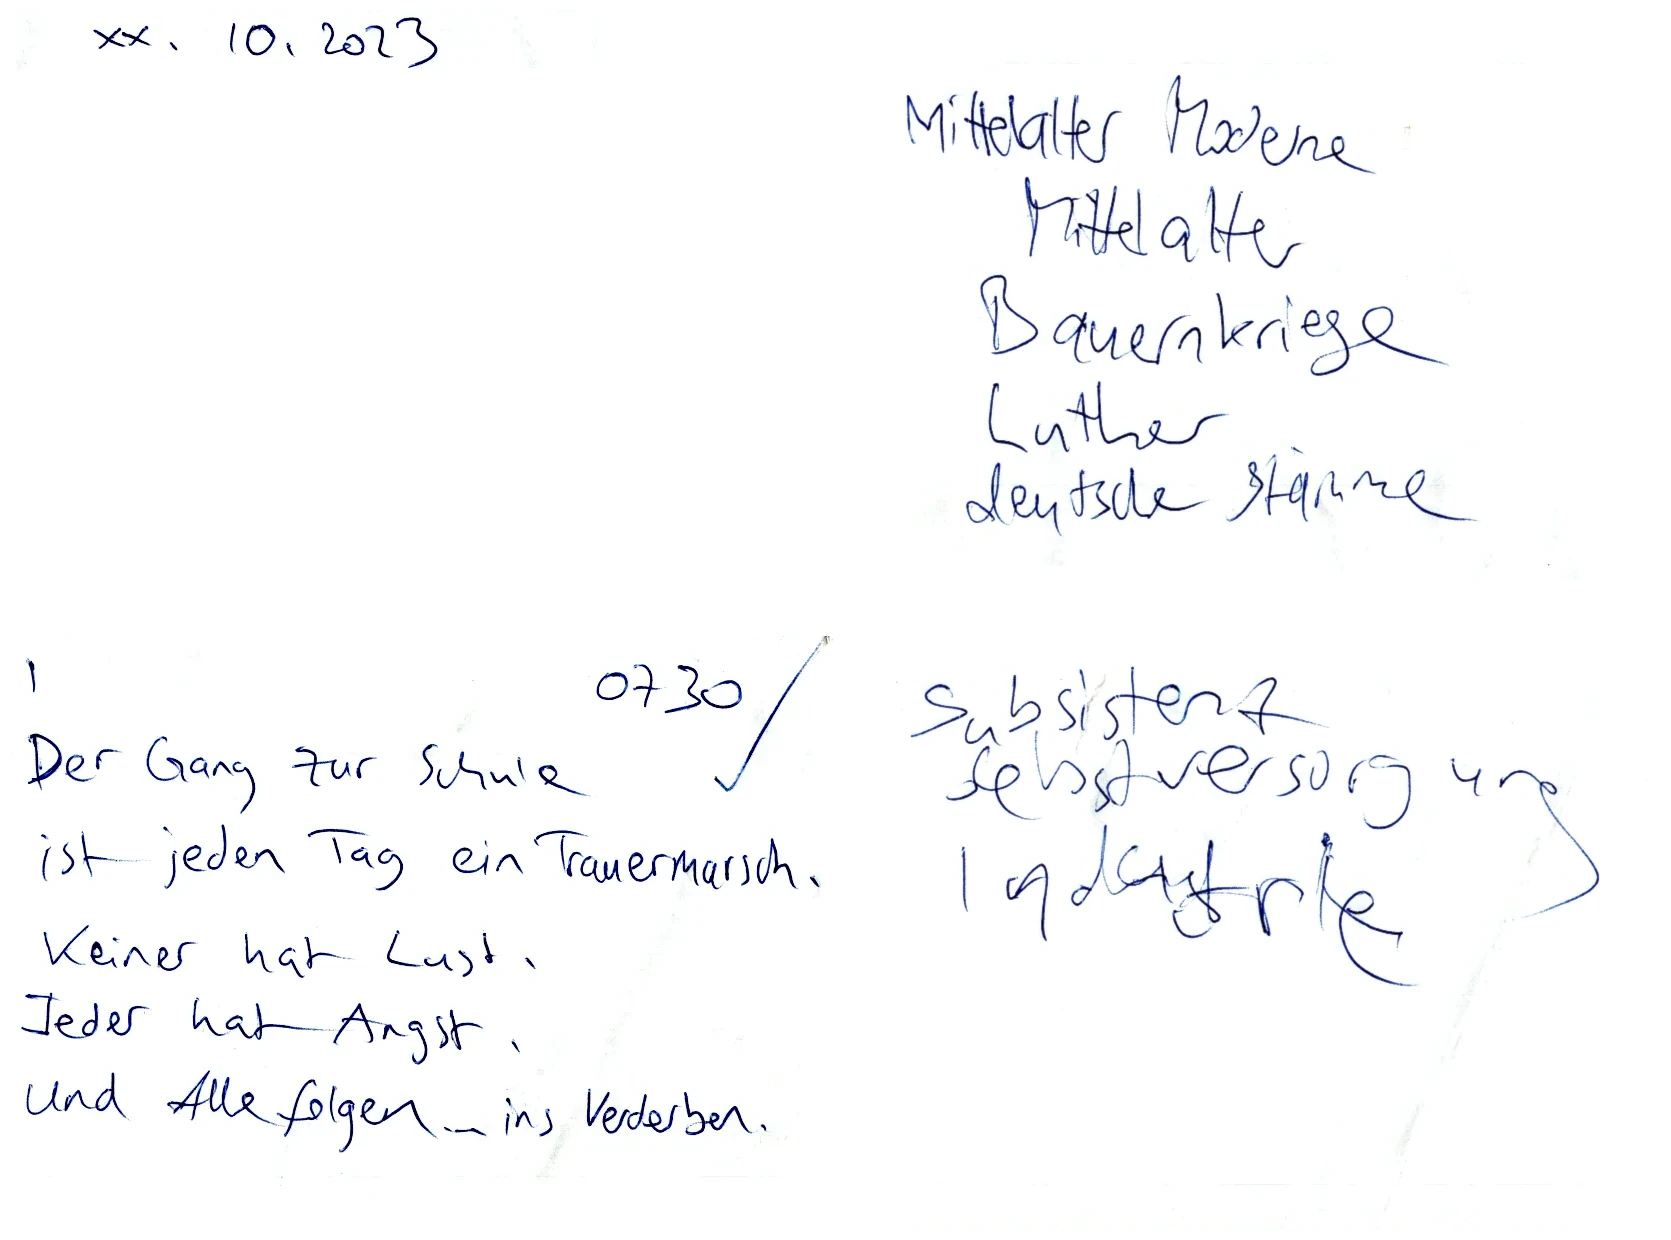 xx. 10. 2023
Mittelalter Moderne
Mittelalter
Bauernkriege
Luther
deutsche Stämme
1
0730
Der Gang zur Schule
ist jeden Tag ein Trauermarsch.
Keiner hat Lust.
Jeder hat Angst.
Und Alle folgen ... ins Verderben.
Subsistenz
Selbstversorgung
Industrie